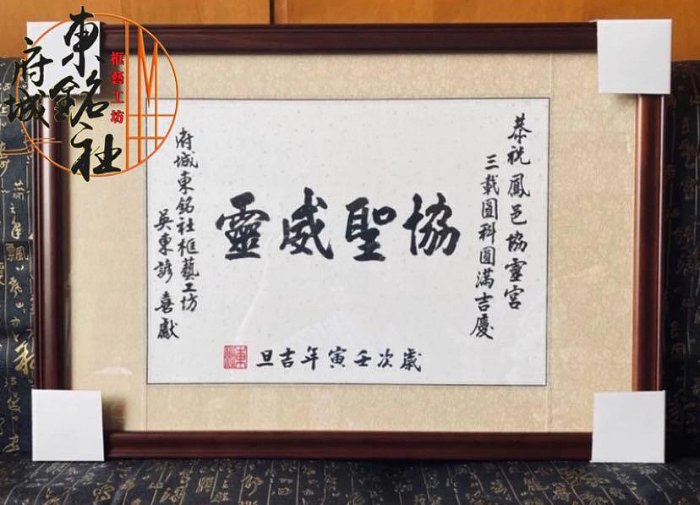 恭祝鳳邑協靈宮
三載圓科圓滿吉慶
協聖威靈
歲次壬寅年吉旦
府城東銘社框藝工坊
吳東諺喜獻
府城
東銘社
框藝工坊